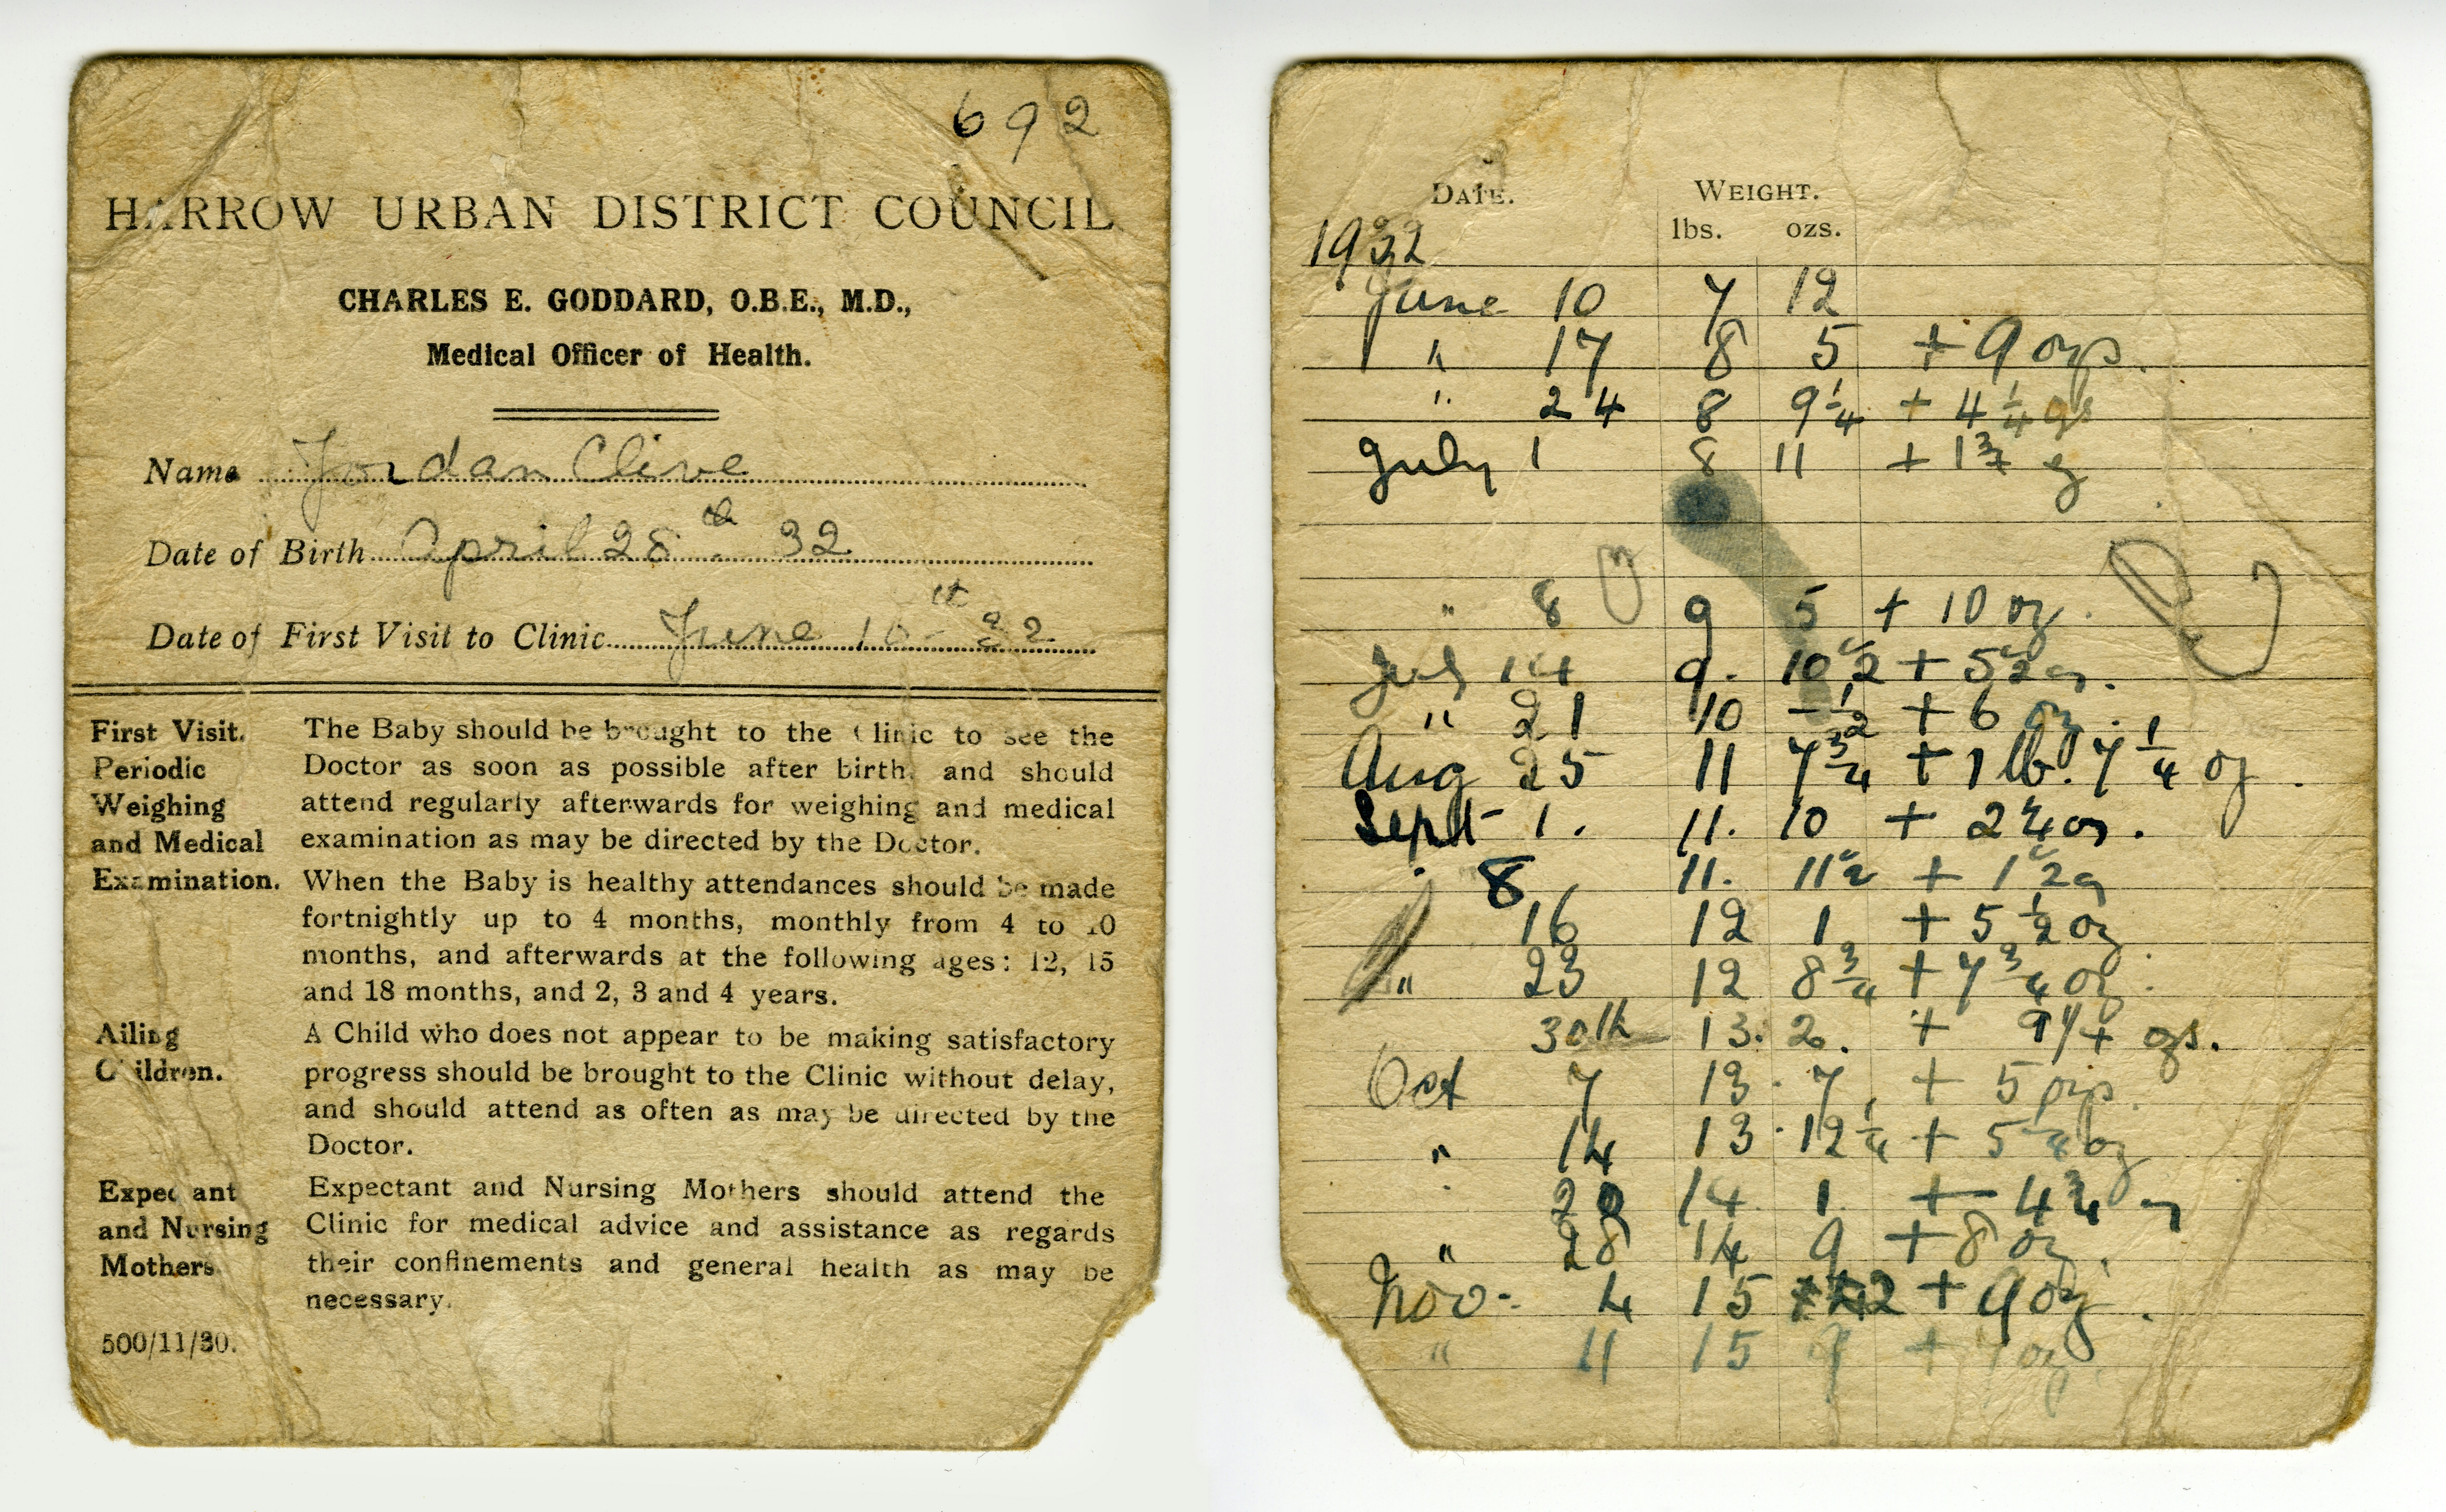 692
HARROW URBAN DISTRICT COUNCIL
CHARLES E. GODDARD, O.B.E., M.D.,
Medical Officer of Health.
Name Jordan Clive
Date of Birth April 28th 32
Date of First Visit to Clinic June 10th 32
First Visit. The Baby should be brought to the Clinic to see the
Periodic Doctor as soon as possible after birth, and should
Weighing attend regularly afterwards for weighing and medical
and Medical examination as may be directed by the Doctor.
Examination. When the Baby is healthy attendances should be made
fortnightly up to 4 months, monthly from 4 to 10
months, and afterwards at the following ages: 12, 15
and 18 months, and 2, 3 and 4 years.
Ailing A Child who does not appear to be making satisfactory
Children. progress should be brought to the Clinic without delay,
and should attend as often as may be directed by the
Doctor.
Expectant Expectant and Nursing Mothers should attend the
and Nursing Clinic for medical advice and assistance as regards
Mothers their confinements and general health as may be
necessary.
500/11/30.
DATE. WEIGHT.
lbs. ozs.
1932
June 10 7 12
" 17 8 5 + 9 ozs.
" 24 8 9 1/4 + 4 1/4 ozs
July 1 8 11 + 1 3/4 oz
" 8 9 5 + 10 oz.
July 14 9. 10 1/2 + 5 1/2 oz.
" 21 10 - 1/2 + 6 oz.
Aug 25 11 7 3/4 + 1 lb. 7 1/4 oz.
Sept 1. 11. 10 + 2 1/4 oz.
8 11. 11 1/2 + 1 1/2 oz
16 12 1 + 5 1/2 oz
" 23 12 8 3/4 + 7 3/4 oz.
30th 13. 2. + 9 1/4 ozs.
Oct 7 13. 7. + 5 ozs.
" 14 13. 12 1/4 + 5 1/4 oz
20 14 1 + 4 3/4 oz
" 28 14 9 + 8 oz.
Nov- 4 15 2 + 9 oz.
" 11 15 9 + 7 oz.